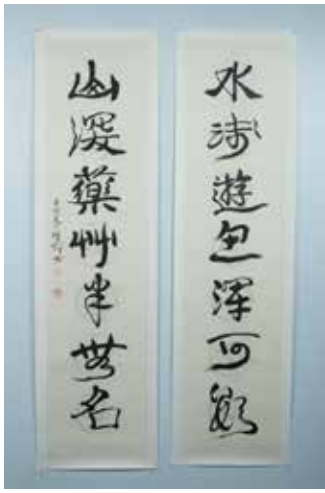 水浅遊魚渾可數
山深藥艸半無名